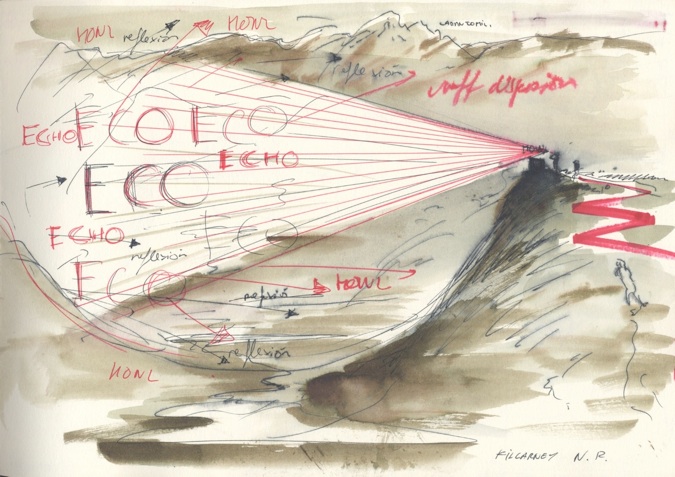 HOWL
reflexión
HOWL
reflexión
ECHO
ECO
ECO
HOWL
ECHO
ECO
ECHO
ECO
reflexión
ECO
reflexión
HOWL
reflexión
HOWL
KILLARNEY N.R.